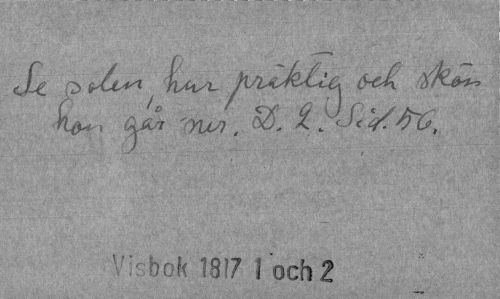 Se solen, hur präktig och skön
hon går ner. D. 2. Sid. 56.
Visbok 1817 1 och 2